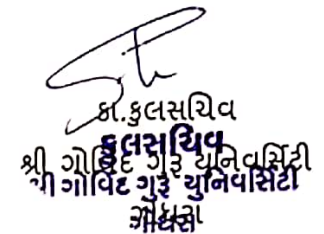 કા.કુલસચિવ
કુલસચિવ
શ્રી ગોવિંદ ગુરૂ યુનિવર્સિટી
શ્રી ગોવિંદ ગુરૂ યુનિવર્સિટી
ગોધરા
ગોધરા